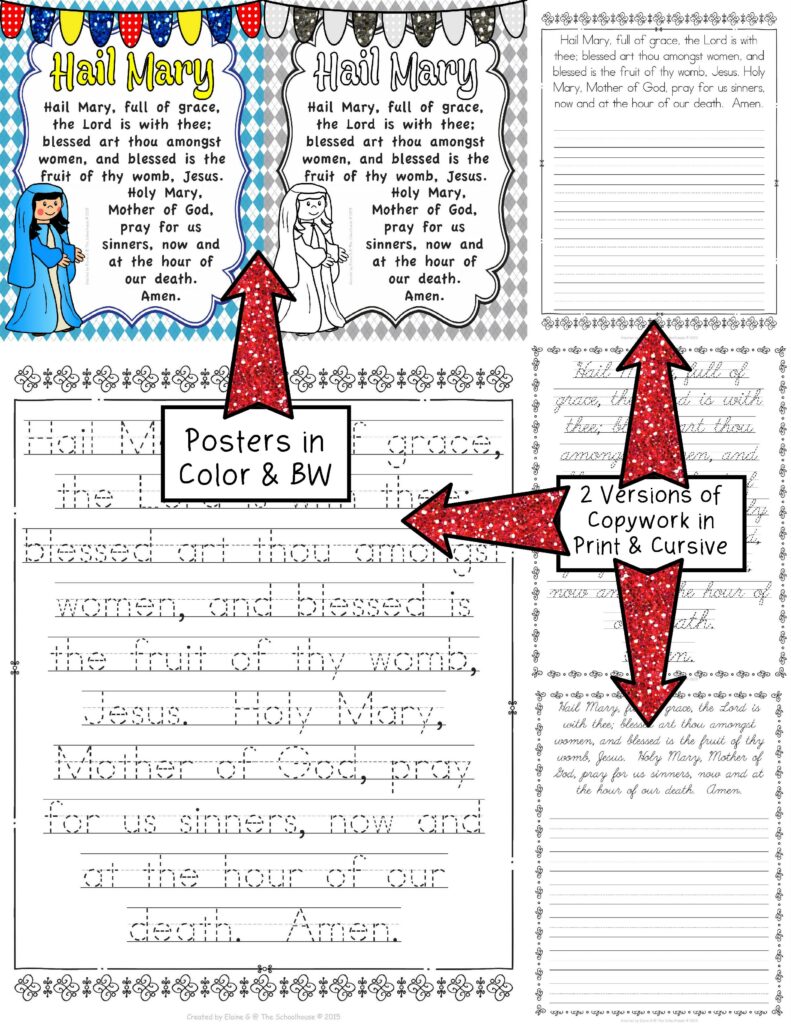 Hail Mary
Hail Mary, full of grace,
the Lord is with thee;
blessed art thou amongst
women, and blessed is the
fruit of thy womb, Jesus.
Holy Mary,
Mother of God,
pray for us
sinners, now and
at the hour of
our death.
Amen.
Hail Mary
Hail Mary, full of grace,
the Lord is with thee;
blessed art thou amongst
women, and blessed is the
fruit of thy womb, Jesus.
Holy Mary,
Mother of God,
pray for us
sinners, now and
at the hour of
our death.
Amen.
Hail Mary, full of grace, the Lord is with
thee; blessed art thou amongst women, and
blessed is the fruit of thy womb, Jesus. Holy
Mary, Mother of God, pray for us sinners,
now and at the hour of our death. Amen.
Posters in
Color & BW
2 Versions of
Copywork in
Print & Cursive
Hail of grace,
the Lord is with thee;
blessed art thou amongst
women, and blessed is
the fruit of thy womb,
Jesus. Holy Mary,
Mother of God, pray
for us sinners, now and
at the hour of our
death. Amen.
Hail full of
grace, the is with
thee; art thou
and
now the hour of
Hail Mary, grace, the Lord is
with thee; art thou amongst
women, and blessed is the fruit of thy
womb, Jesus. Holy Mary, Mother of
God, pray for us sinners, now and at
the hour of our death. Amen.
Created by Elaine G @ The Schoolhouse © 2015